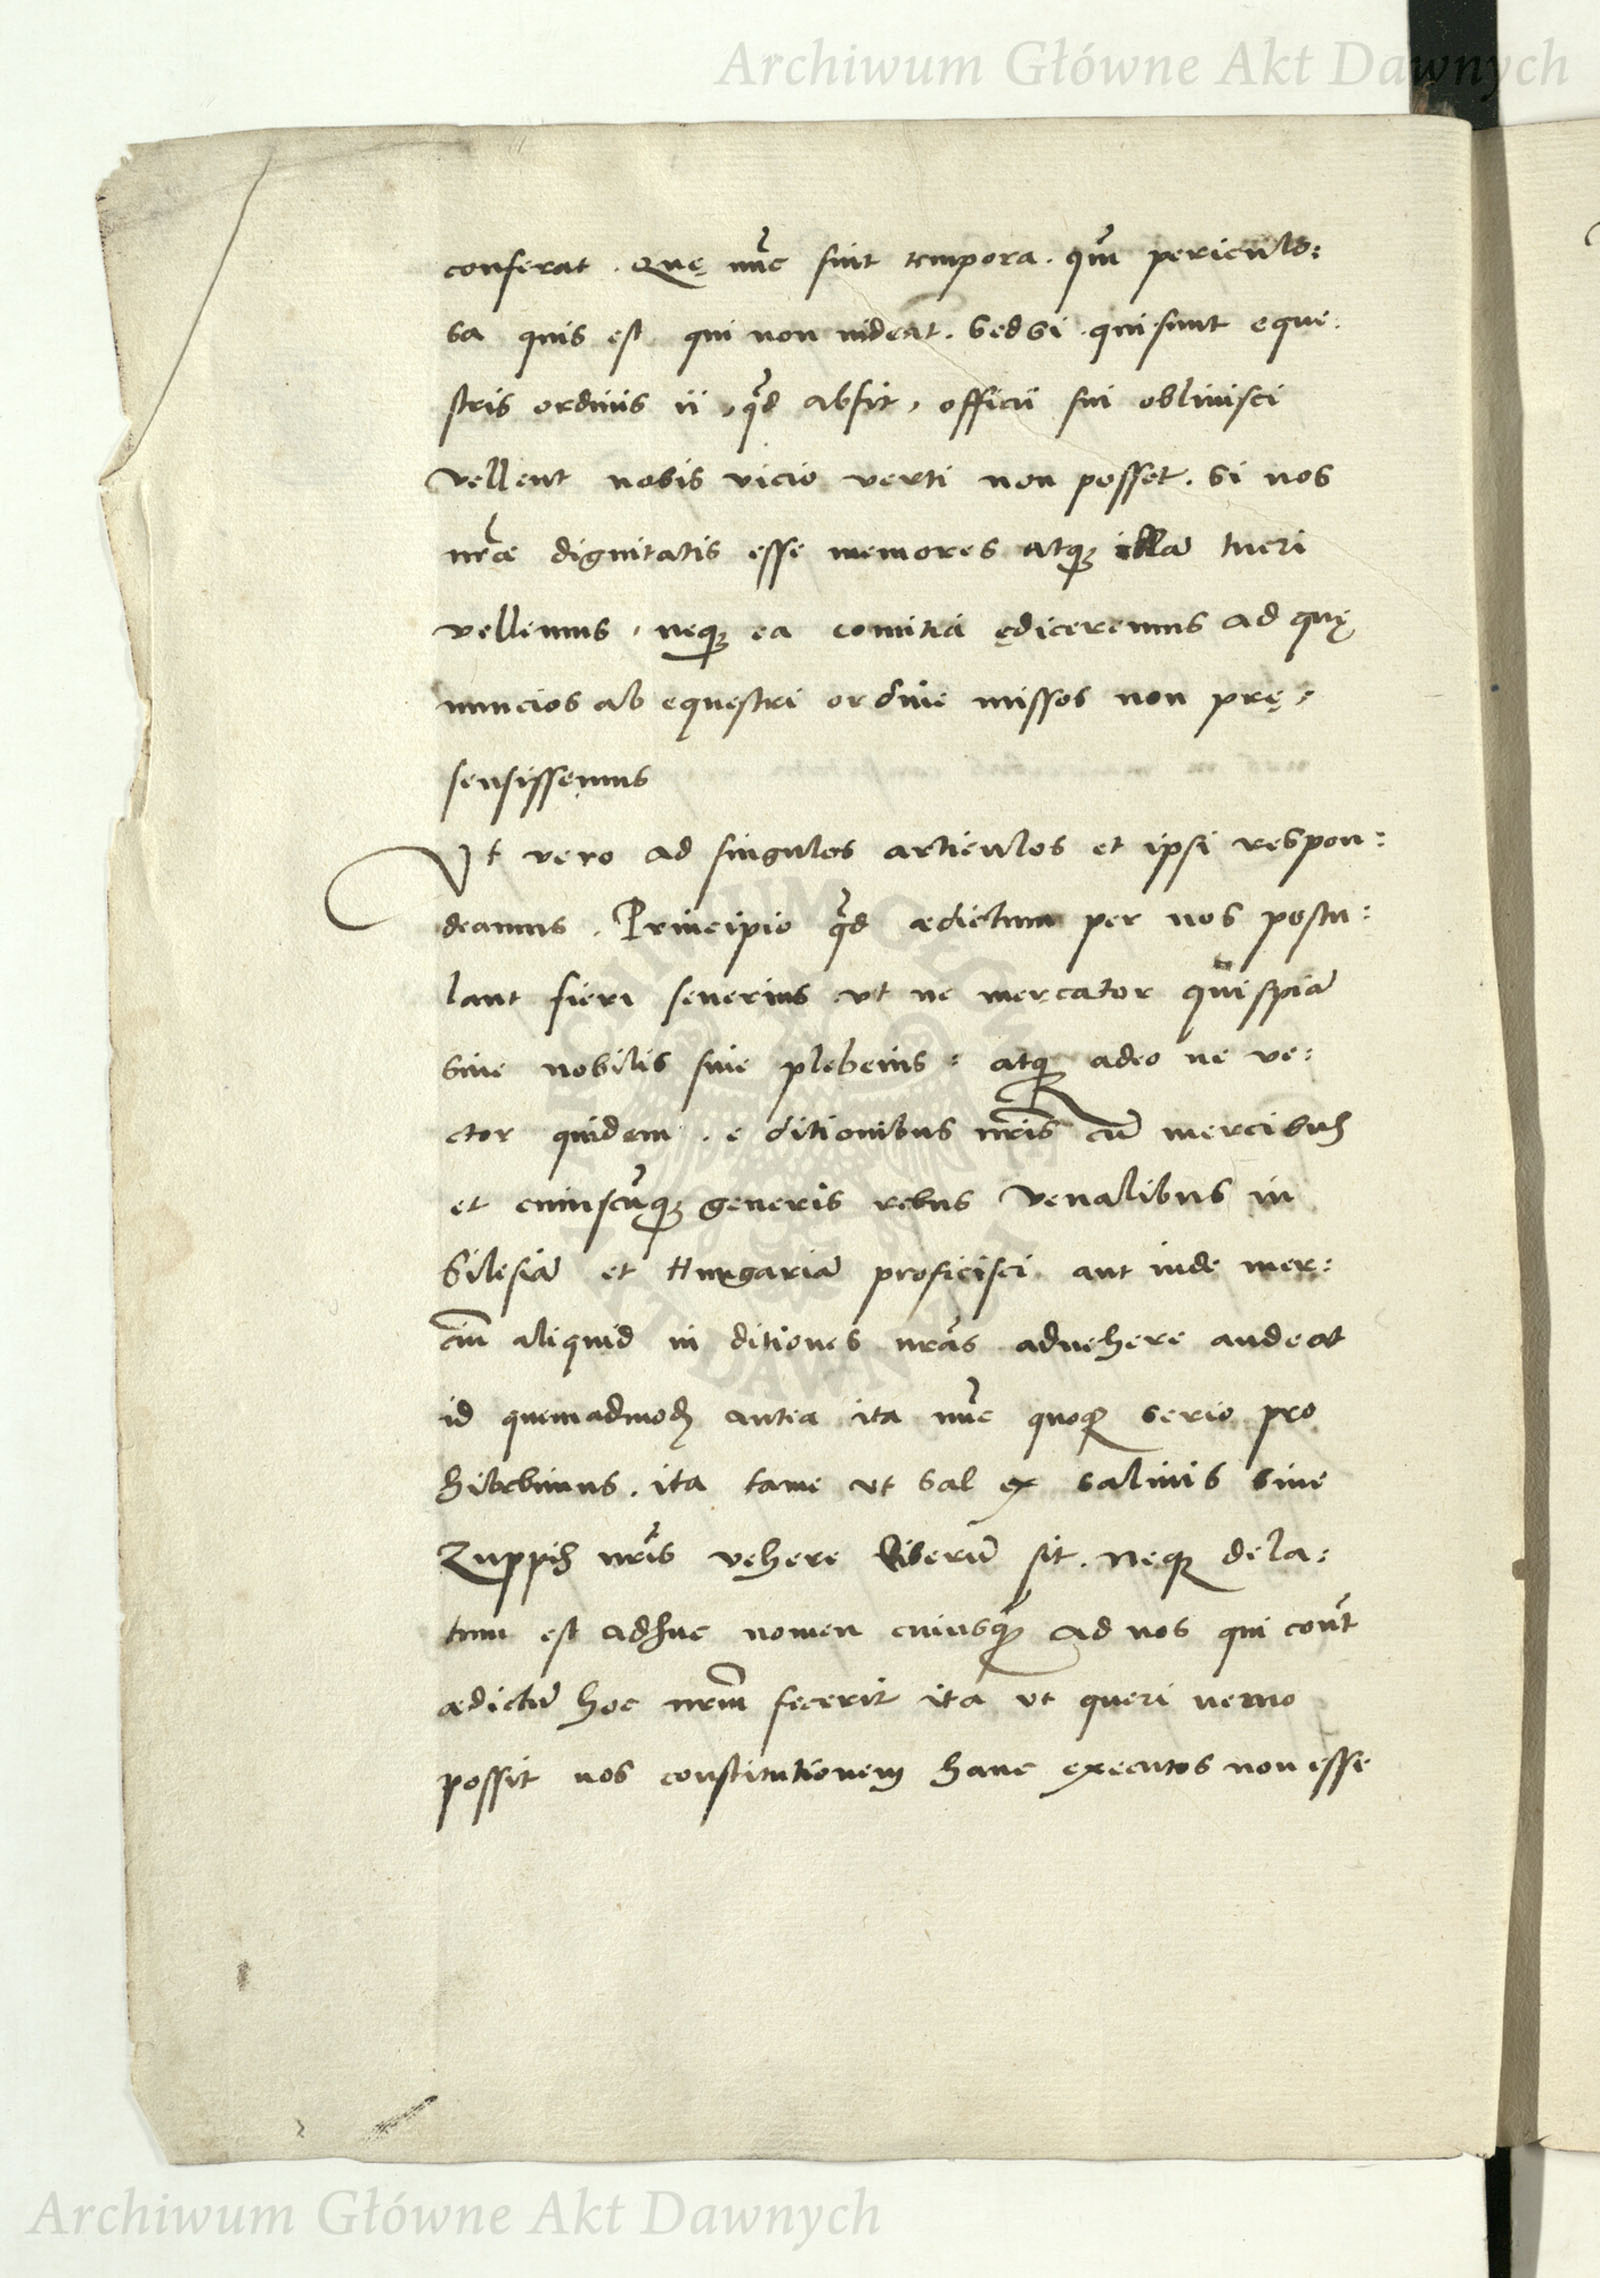 Archiwum Główne Akt Dawnych
conferat . Quę nu̅c sint tempora . qua̅ periculo:
sa quis est qui non uideat . Sed si . qui sunt eque:
stris ordinis ii , qd̅ absit , officii sui obliuisci
vellent nobis vicio verti non posset . Si nos
nr̅ae dignitatis esse memores atqꝫ illa̅ tueri
vellemus , neqꝫ ea comitia ędiceremus ad quę
nuncios ab equestri ordine missos non prę,
sensissemus
Vt vero ad singulos articulos et ipsi respon:
deamus . Principio qd̅ aedictum per nos postu:
lant fieri seuerius vt ne mercator quispia̅
Siue nobilis siue plebeius : atqꝫ adeo ne ve:
ctor quidem . e ditionibus nr̅is cu̅ mercibus
et cuiuscu̅qꝫ generis rebus venalibus in
Silesia̅ et Hungaria̅ proficisci aut inde mer:
ciu̅ aliquid in ditiones nr̅as aduehere audeat
id quemadmodꝫ antea ita nu̅c quoqꝫ serio pro
hibebimus . ita tame vt Sal ex salinis Siue
Zuppis nr̅is vehere liberu̅ sit . Neqꝫ dela:
tum est adhuc nomen cuiusqꝫ ad nos qui cont̅
aedictu̅ hoc nr̅m fecerit ita vt queri nemo
possit nos constitutionem hanc executos non esse
ARCHIWUM GŁÓWNE AKT DAWNYCH
Archiwum Główne Akt Dawnych